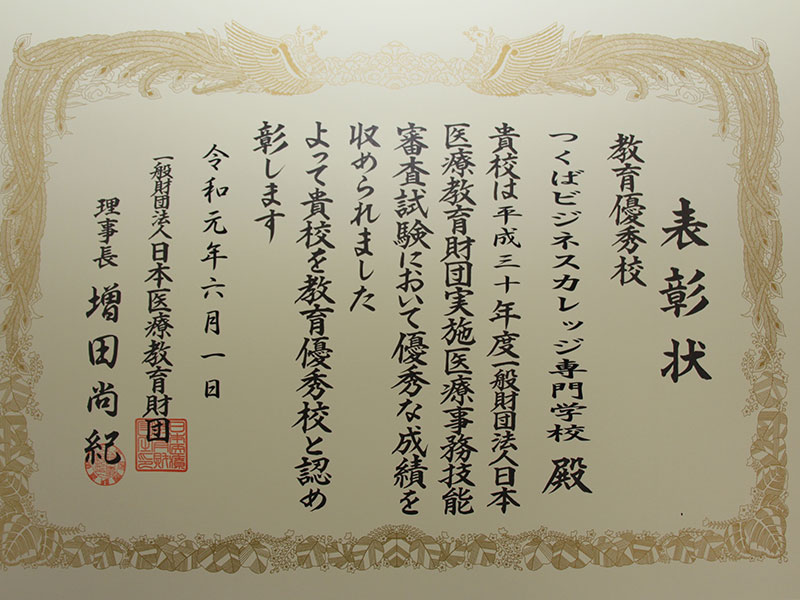 表彰状
教育優秀校
つくばビジネスカレッジ専門学校 殿
貴校は平成三十年度一般財団法人日本
医療教育財団実施医療事務技能
審査試験において優秀な成績を
収められました
よって貴校を教育優秀校と認め
彰します
令和元年六月一日
一般財団法人日本医療教育財団
理事長 増田尚紀